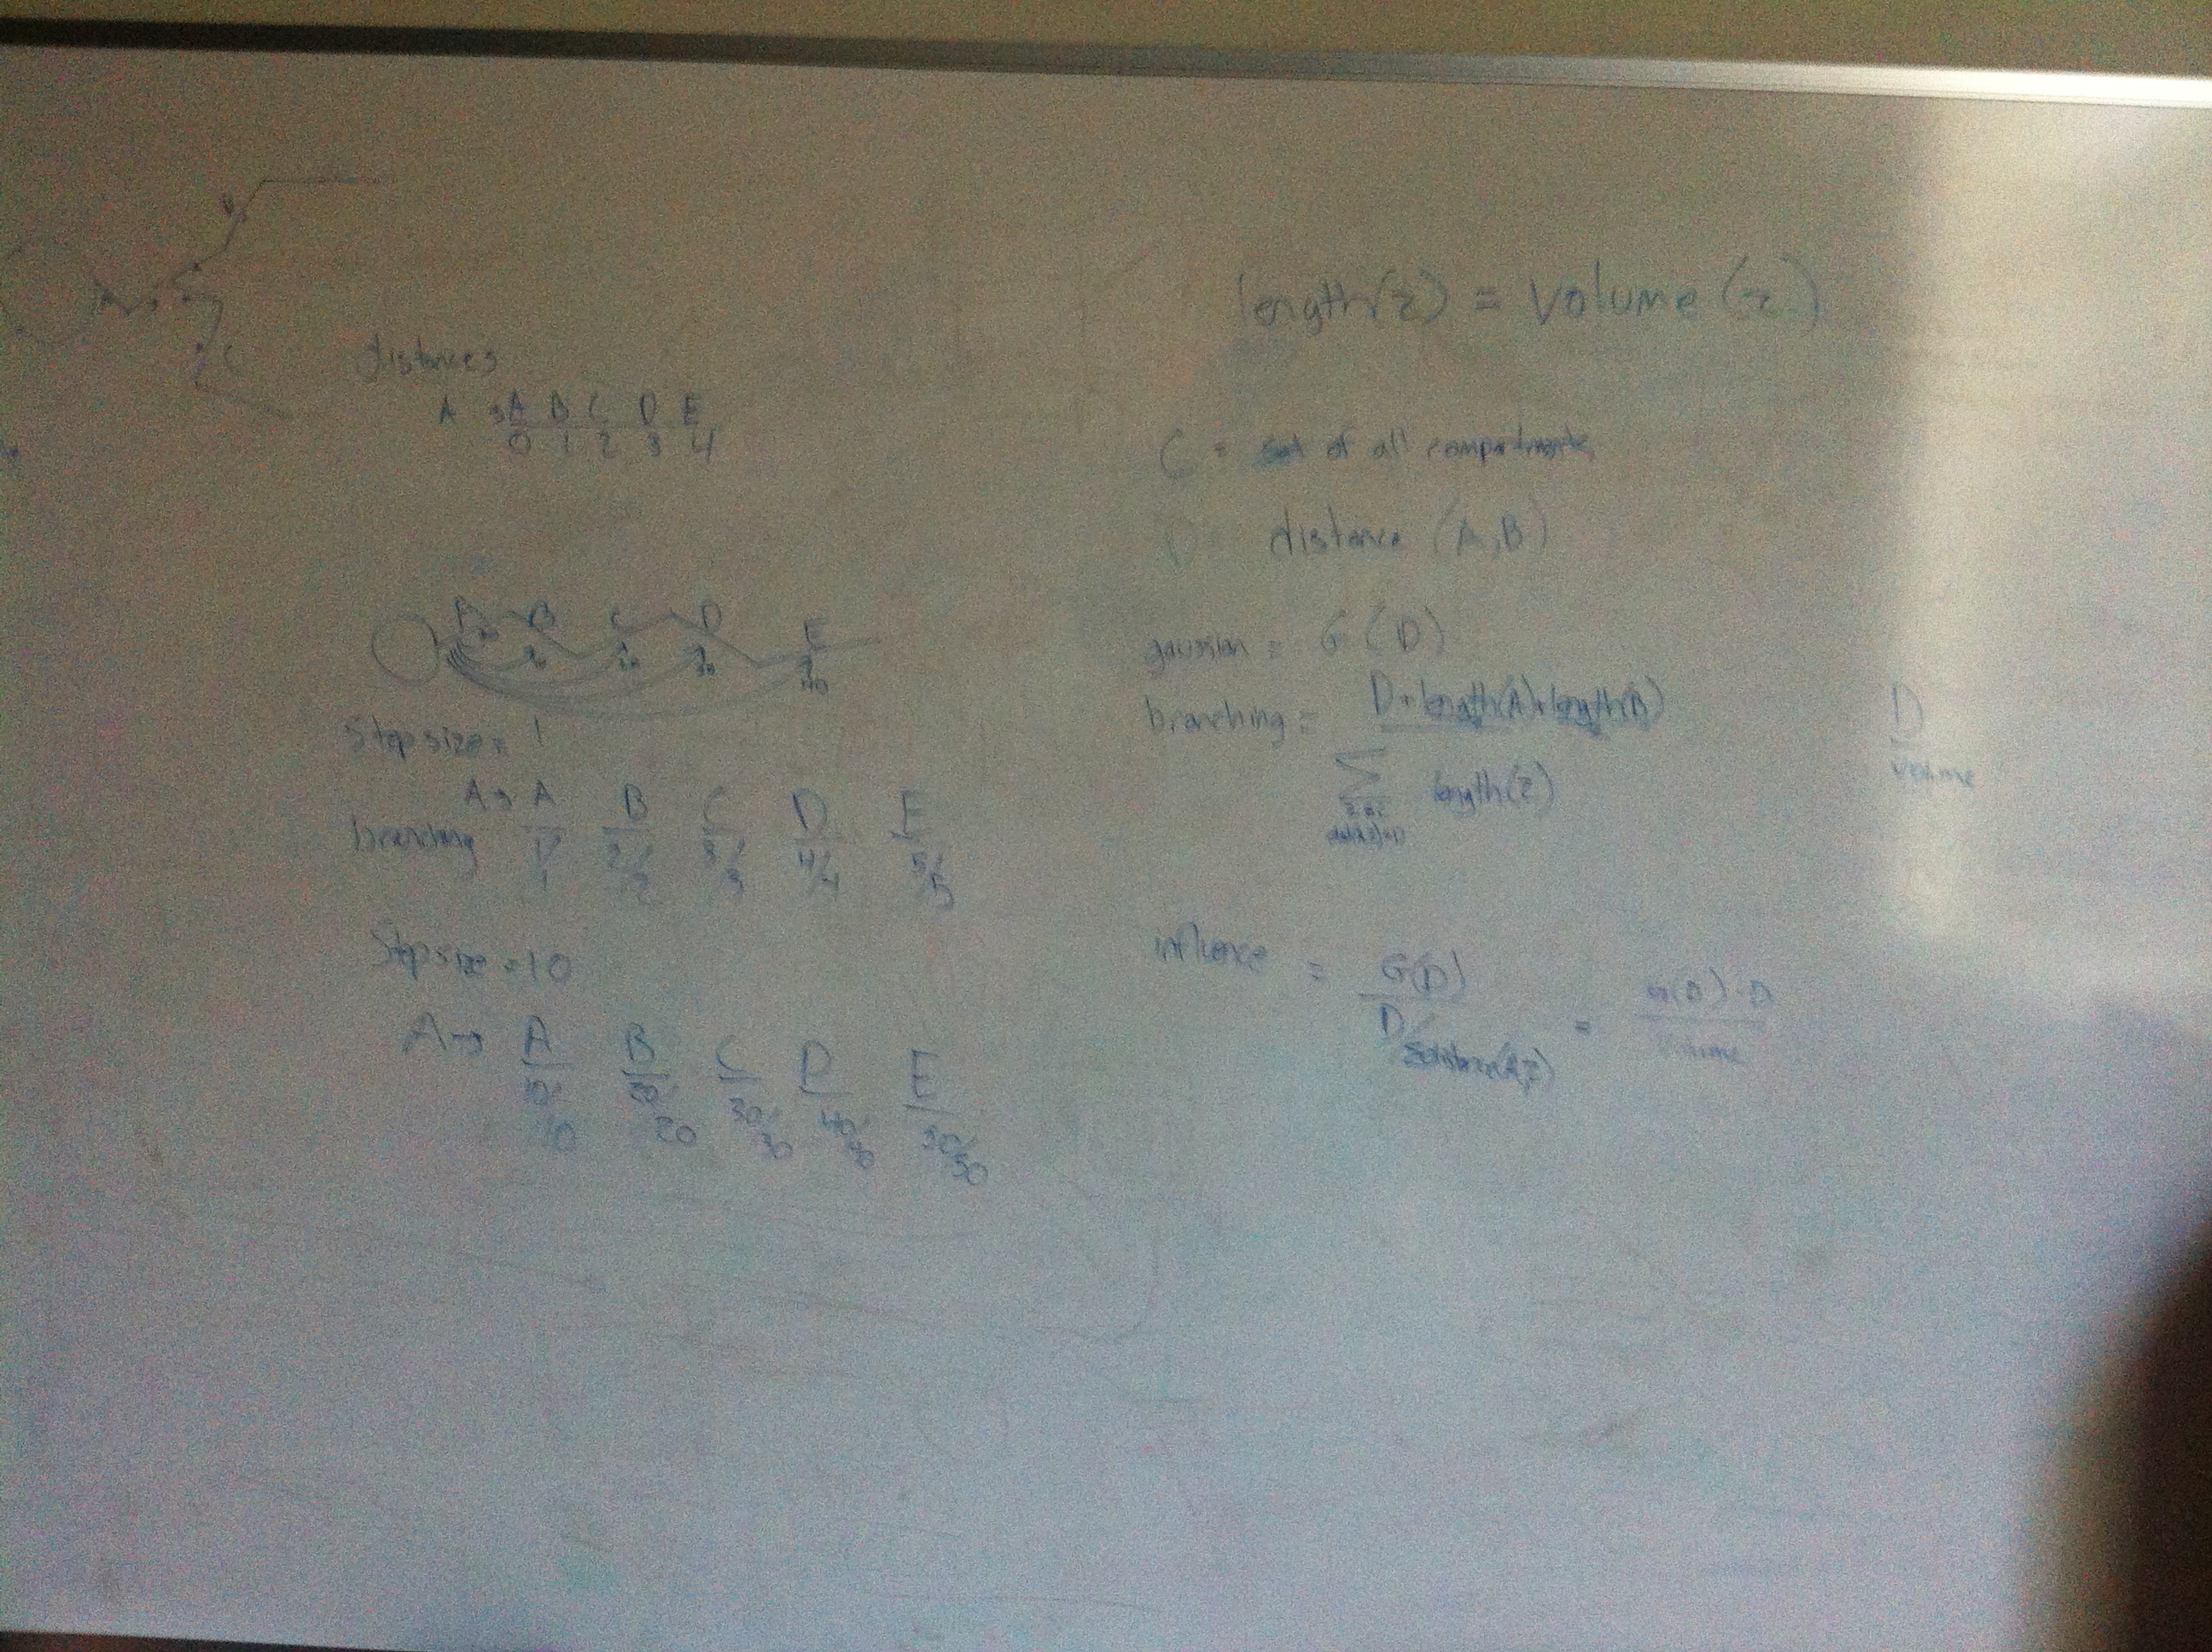 distances
A → A B C D E
0 1 2 3 4
A B C D E
10 20 30 40
Step size = 1
A → A B C D E
branching 1/1 2/2 3/3 4/4 5/5
Step size = 10
A → A B C D E
10/10 20/20 30/30 40/40 50/50
length(z) = Volume(z)
C = set of all compartments
D distance (A,B)
gaussian = G(D)
branching = D + length(A) + length(B)
Σ length(z)
D
volume
influence = G(D) = G(D) · D
D/ volume